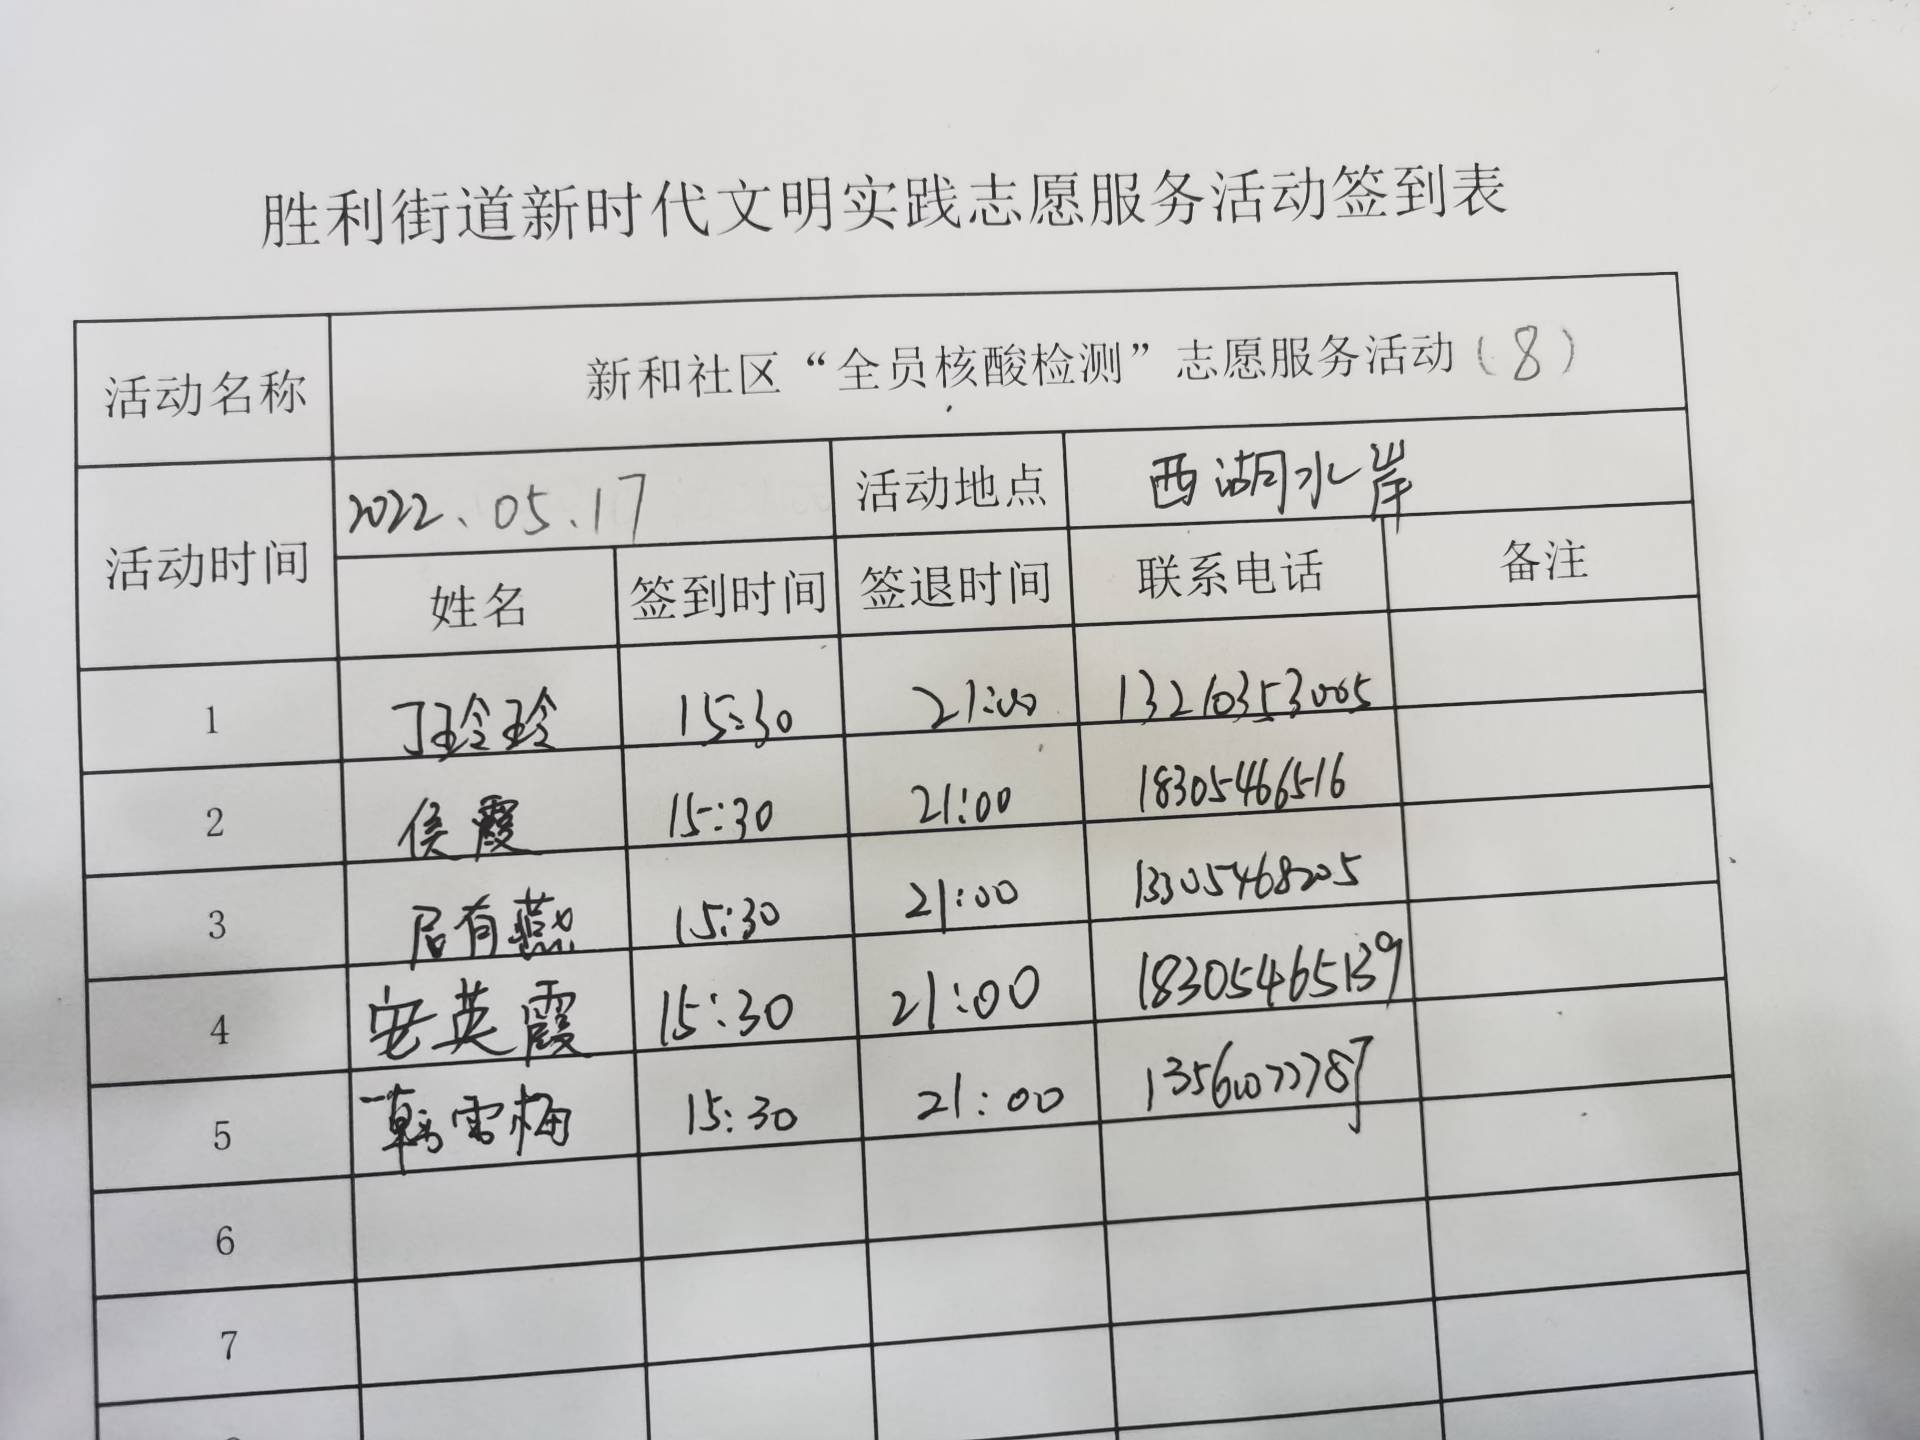 胜利街道新时代文明实践志愿服务活动签到表
活动名称 新和社区“全员核酸检测”志愿服务活动（8）
活动时间 2022.05.17 活动地点 西湖水岸
姓名 签到时间 签退时间 联系电话 备注
1 丁玲玲 15:30 21:00 13210353005
2 侯霞 15:30 21:00 18305466516
3 有燕 15:30 21:00 13305468205
4 安英霞 15:30 21:00 18305465139
5 韩雪梅 15:30 21:00 13561077787
6
7